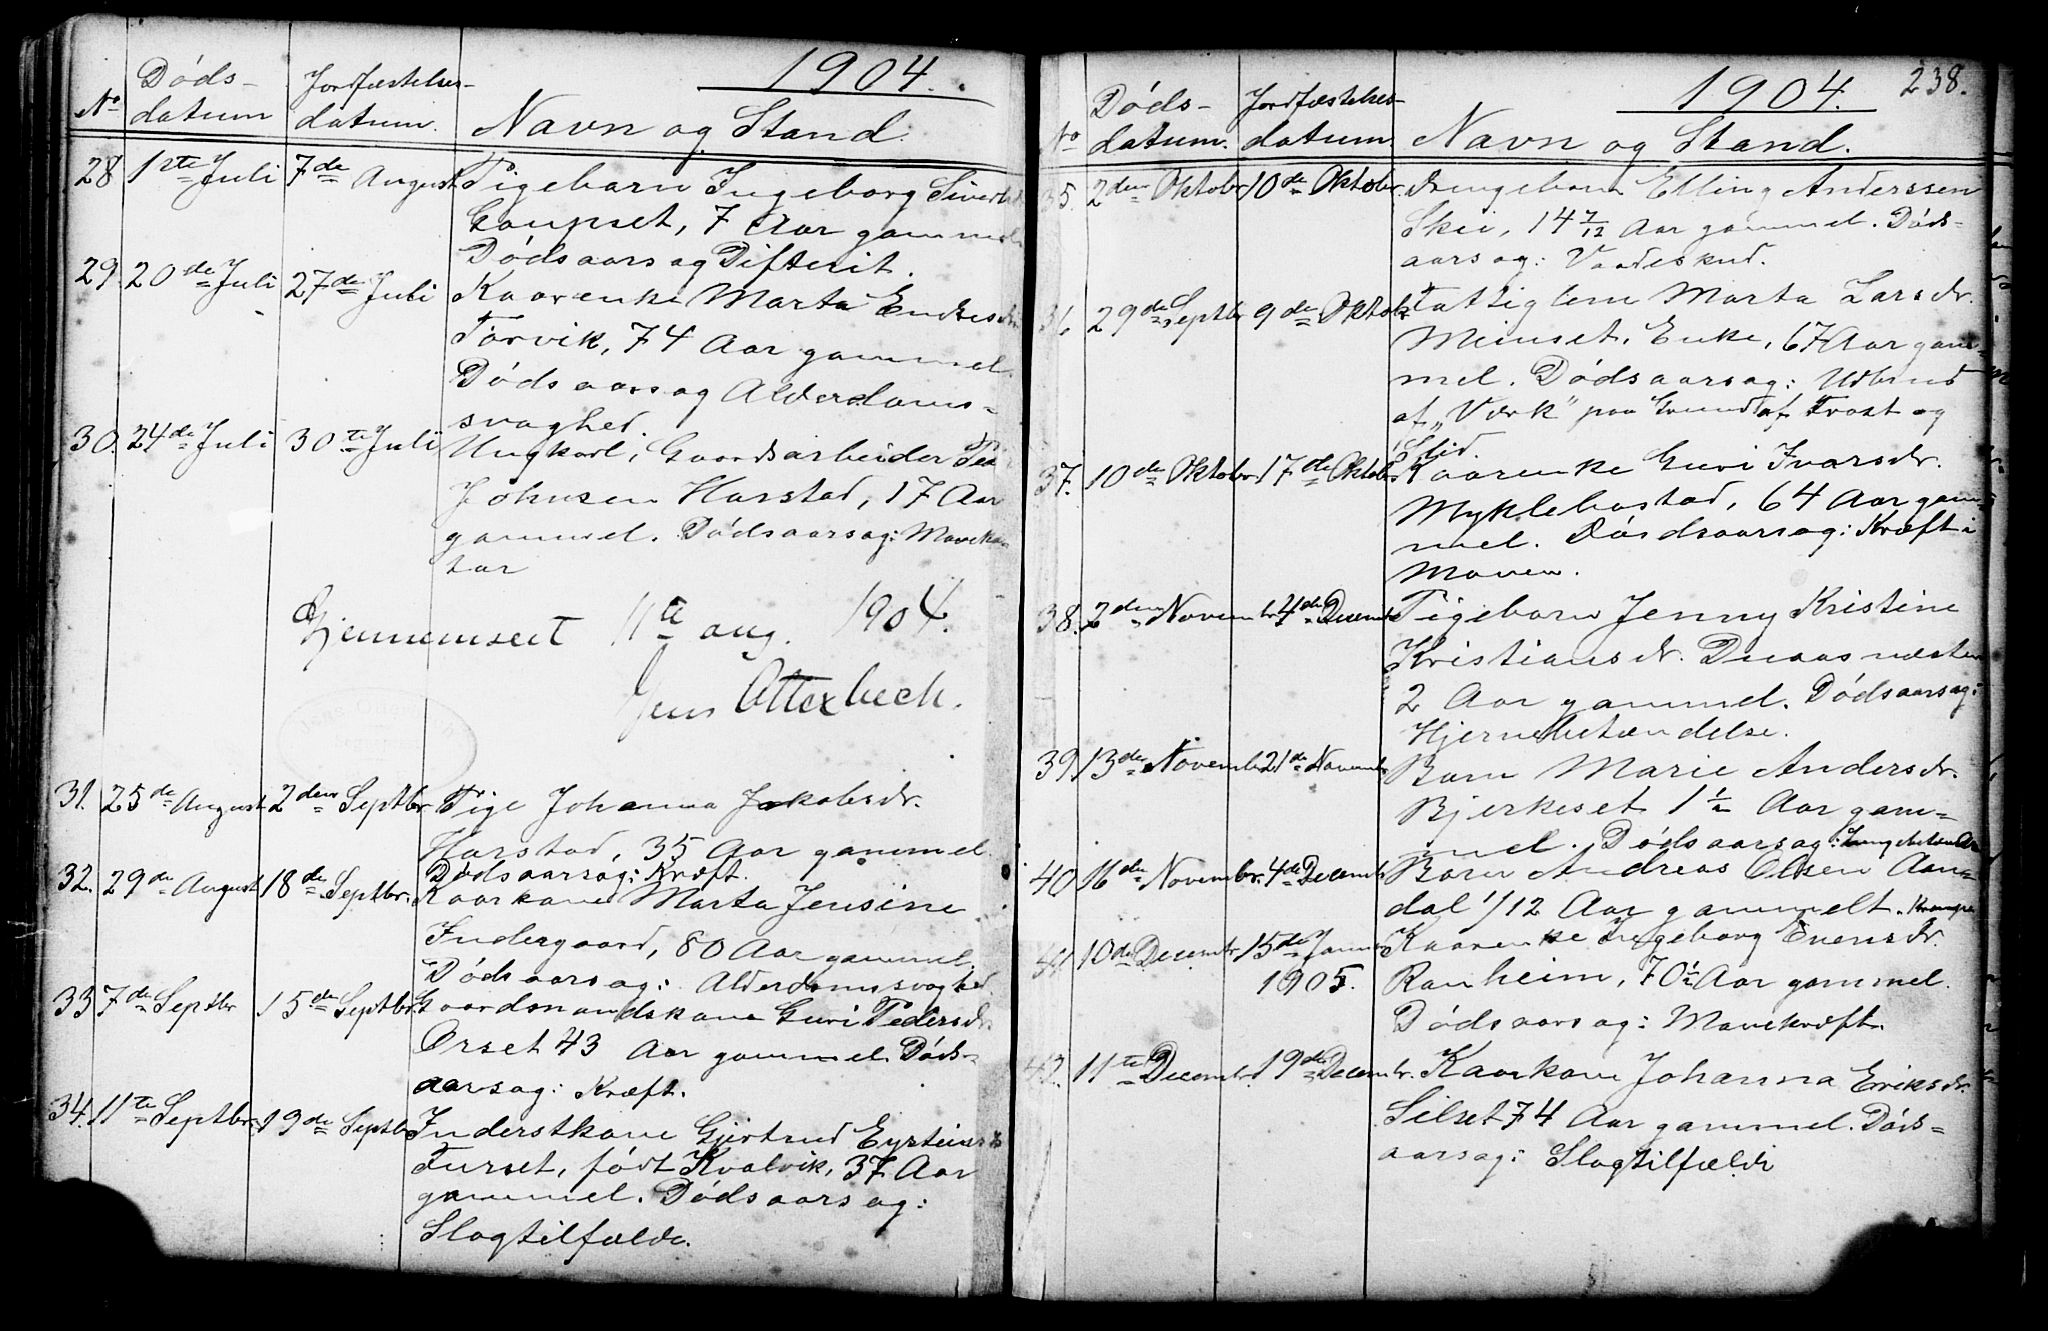 1904.
No Døds- Jordfæstelses-
datum datum. Navn og Stand.
28 1ste Juli 7de August Pigebarn Ingeborg Sivertsd.
Gaupset, 7 Aar gammel
Dødsaarsag Difterit.
29. 20de Juli 27de Juli Kaarenke Marta Endresdr.
Torvik, 74 Aar gammel.
Dødsaarsag Alderdoms-
svaghed.
30. 24de Juli 30te Juli Ungkarl, Gaardsarbeider Peder
Johnsen Harstad, 17 Aar
gammel. Dødsaarsag: Maveka-
tar
Gjennemseet 11te aug. 1904.
Jens Otterbech.
31. 25de August 2den Septbr. Pige Johanna Jakobsdr.
Harstad, 35 Aar gammel.
Dødsaarsag: Kræft.
32. 29de August 18de Septbr. Kaarkone Marta Jensine
Indergaard, 80 Aar gammel.
Dødsaarsag: Alderdomssvaghed
33 7de Septbr 15de Septbr. Gaardmandskone Guri Pedersdr.
Orset 43 Aar gammel. Døds-
aarsag: Kræft.
34. 11te Septbr. 19de Septbr Inderstkone Gjertrud Eysteinsdr
Furset, født Kvalvik, 37 Aar
gammel. Dødsaarsag:
Slagtilfælde.
1904. 238.
No Døds- Jordfæstelses-
datum. datum. Navn og Stand.
35. 2den Oktober 10de Oktober. Drengebarn Elling Anderssen
Skei, 14 7/12 Aar gammel. Døds-
aarsag: Vaadeskud.
36. 29de Septbr 9de Oktobr. Fattiglem Marta Larsdr.
Meisset, Enke, 67 Aar gam-
mel. Dødsaarsag: Udbrud
af „Værk" paa Grund af Frost og
Slid.
37. 10de Oktober 17de Oktober Kaarenke Guri Ivarsdr.
Myklebostad, 64 Aar gam-
mel. Dødsaarsag: Kræft i
Maven.
38. 2den Novembr 4de Decembr Pigebarn Jenny Kristine
Kristiansdr. Duaas næsten
2 Aar gammel. Dødsaarsag:
Hjernebetændelse.
39 13de Novembr 21de Novembr Barn Marie Andersdr.
Bjerkeset 1 1/2 Aar gam-
mel. Dødsaarsag: Lungebetændelse
40 16de Novembr. 4de Decembr Barn Andreas Olsen Aan-
dal 1/12 Aar gammelt. Krampe
41 10de Decembr 15de Januar Kaarenke Ingeborg Evensdr.
1905. Ranheim, 70 1/2 Aar gammel.
Dødsaarsag: Mavekræft.
42. 11te Decembr 19de Decembr. Kaarkone Johanna Eriksdr.
Silset 74 Aar gammel. Døds-
aarsag: Slagtilfælde